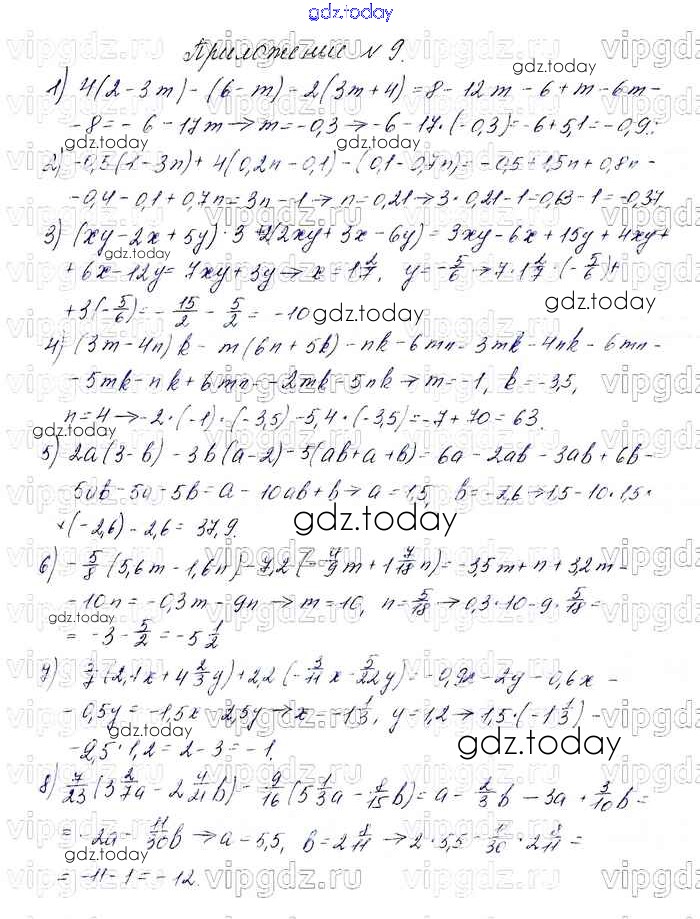 gdz.today
Приложение №9.
1) 4(2-3m)-(6-m)-2(3m+4)=8-12m-6+m-6m-
-8=-6-17m→m=-0,3→-6-17·(-0,3)=-6+5,1=-0,9.
2) -0,5(1-3n)+4(0,2n-0,1)-(0,1-0,7n)=-0,5+1,5n+0,8n-
-0,4-0,1+0,7n=3n-1→n=0,21→3·0,21-1=0,63-1=-0,37
3) (xy-2x+5y)·3+2(2xy+3x-6y)=3xy-6x+15y+4xy+
+6x-12y=7xy+3y→x=1 2/7, y=-5/6→7·1 2/7·(-5/6)+
+3(-5/6)=-15/2-5/2=-10
4) (3m-4n)k-m(6n+5k)-nk-6mn=3mk-4nk-6mn-
-5mk-nk+6mn=-2mk-5nk→m=-1, k=-3,5,
n=4→-2·(-1)·(-3,5)-5,4·(-3,5)=-7+70=63.
5) 2a(3-b)-3b(a-2)-5(ab+a+b)=6a-2ab-3ab+6b-
5ab-5a-5b=a-10ab+b→a=1,5, b=-2,6→1,5-10·1,5·
×(-2,6)-2,6=37,9.
6) -5/8(5,6m-1,6n)-7,2(-4/9m+1 7/18n)=-3,5m+n+3,2m-
-10n=-0,3m-9n→m=10, n=5/18→0,3·10-9·5/18=
=-3-5/2=-5 1/2
7) 3/7(2,1x+4 2/3y)+2,2(-3/11x-5/22y)=-0,9x-2y-0,6x-
-0,5y=-1,5x-2,5y→x=-1 1/3, y=1,2→1,5·(-1 1/3)-
-2,5·1,2=2-3=-1.
8) 7/23(3 2/7a-2 4/21b)-9/16(5 1/3a-8/15b)=a-2/3b-3a+3/10b=
=-2a-11/30b→a=5,5, b=2 8/11→2·5,5-11/30·2 8/11=
=-11-1=-12.